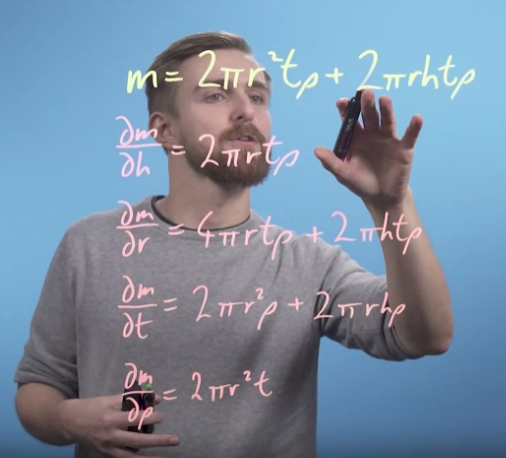 m = 2πr²tρ + 2πrhtρ
∂m/∂h = 2πrtρ
∂m/∂r = 4πrtρ + 2πhtρ
∂m/∂t = 2πr²ρ + 2πrhρ
∂m/∂ρ = 2πr²t